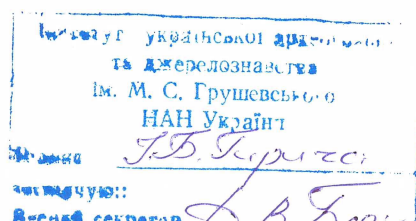 Інститут української археографії
та джерелознавства
ім. М. С. Грушевського
НАН України
Г.Б.
засвідчую::
Вчений секретар